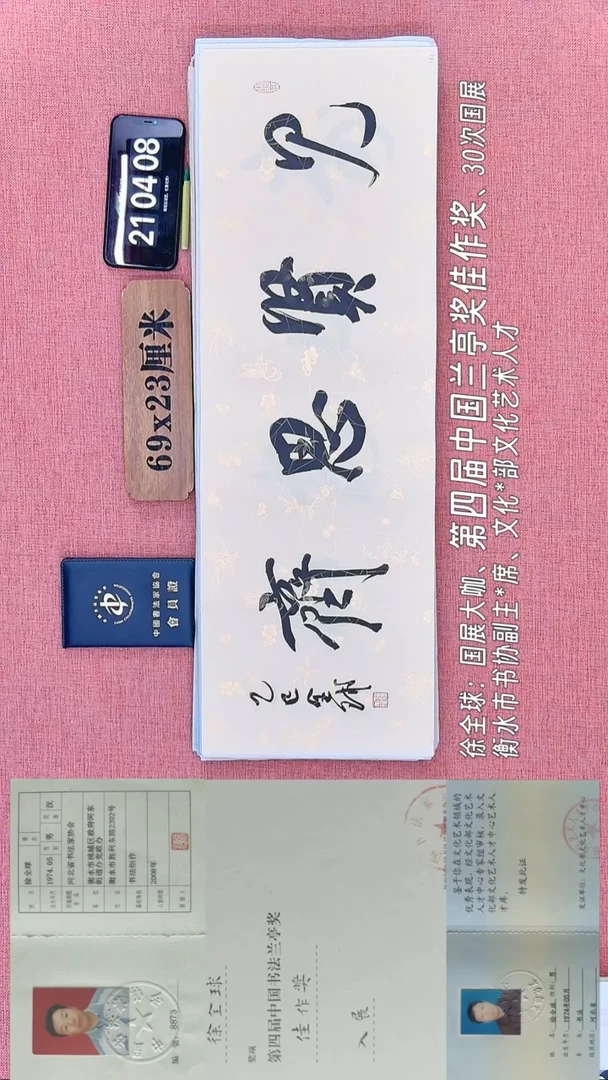 21 04 08
69x23厘米
中國書法家協會
會員證
見賢思齊
乙巳全球
徐全球：国展大咖、第四届中国兰亭奖佳作奖、30次国展
衡水市书协副主*席、文化*部文化艺术人才
徐全球
1974.05
男
汉
河北省书法家协会
衡水市桃城区政府河东
街道办党政办
衡水市胜利东路2202号
书法创作
2008年
8873
徐全球
奖项
第四届中国书法兰亭奖
佳作奖
入展
鉴于你在文化艺术领域的
优秀表现，经文化部文化艺术
人才中心专家组审核，录入文
化部文化艺术人才中心艺术人
才库。
特发此证
发证单位：文化部文化艺术人才中心
姓名：徐全球
性别：男
出生年月：1974年05月